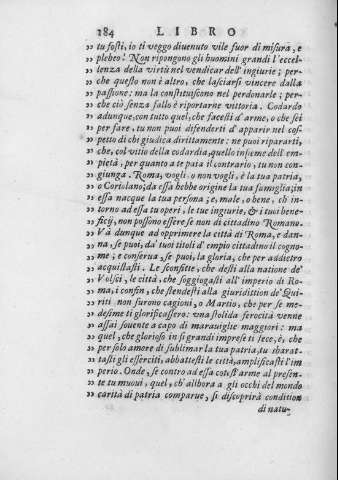 184 LIBRO
„ tu fosti, io ti veggo diuenuto vile fuor di misura, e
„ plebeo! Non ripongono gli huomini grandi l'eccel-
„ lenza della virtù nel vendicar dell'ingiurie; per-
„ che questo non è altro, che lasciarsi vincere dalla
„ passione; ma la constituiscono nel perdonarle; per-
„ che ciò senza fallo è riportarne vittoria. Codardo
„ adunque, con tutto quel, che facesti d'arme, o che sei
„ per fare, tu non puoi difenderti d'apparir nel cos-
„ petto di chi giudica dirittamente: ne puoi ripararti,
„ che, col vitio della codardia, quello insieme dell'em-
„ pietà, per quanto a te pata il contrario, tu non con-
„ giunga. Roma, vogli, o non vogli, è la tua patria,
„ o Coriolano; da essa hebbe origine la tua famiglia; in
„ essa nacque la tua persona; e, male, o bene, ch'in-
„ torno ad essa tu operi, le tue ingiurie, & i tuoi bene-
„ ficij, non possono essere se non di cittadino Romano.
„ Và dunque ad opprimere la città di Roma, e dan-
„ na, se puoi, da' tuoi titoli d'empio cittadino il cogno-
„ me; e conserua, se puoi, la gloria, che per addietro
„ acquistasti. Le sconfitte, che desti alla natione de'
„ Volsci, le città, che soggiogasti all'imperio di Ro-
„ ma, i confin, che stendesti alla giuridittion de' Qui-
„ riti non furono cagioni, o Martio, che per se me-
„ desime ti glorificassero: una stolida ferocità venne
„ assai souente a capo di marauiglie maggiori: ma
„ quel, che glorioso in sì grandi imprese ti fece, è, che
„ per solo amore di sublimar la tua patria, tu sbarat-
„ tasti gli esserciti, abbattesti le città, amplificasti l'im-
„ perio. Onde, se contro ad essa cotest'arme al presen-
„ te tu muoui, quel, ch'allhora a gli occhi del mondo
„ carità di patria comparue, si discoprirà condition
di natu-